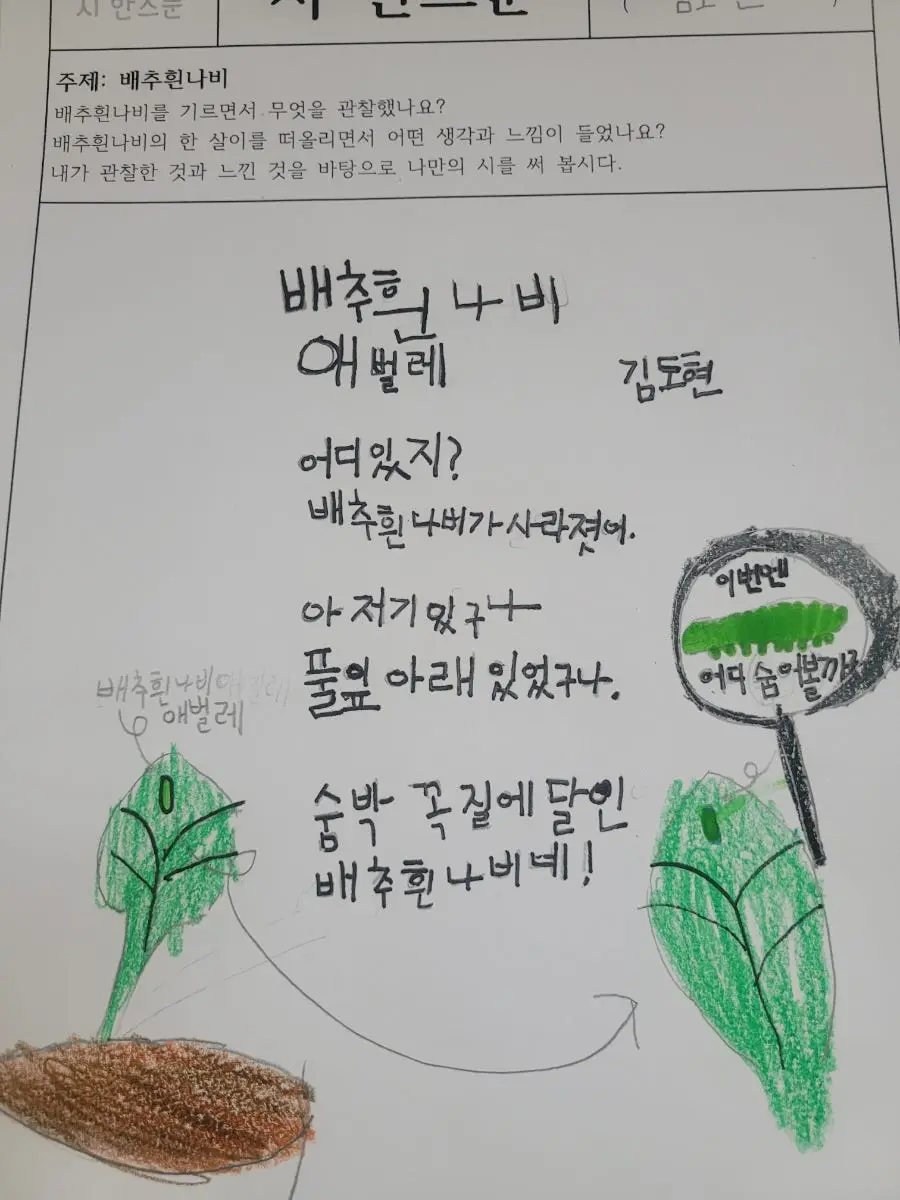 시 한스푼
주제: 배추흰나비
배추흰나비를 기르면서 무엇을 관찰했나요?
배추흰나비의 한 살이를 떠올리면서 어떤 생각과 느낌이 들었나요?
내가 관찰한 것과 느낀 것을 바탕으로 나만의 시를 써 봅시다.
배추흰나비
애벌레
김도현
어디있지?
배추흰나비가 사라졌어.
아 저기있구나
풀잎 아래 있었구나.
숨박 꼭질에 달인
배추흰나비네!
이번엔
어디 숨어볼까?
배추흰나비
애벌레